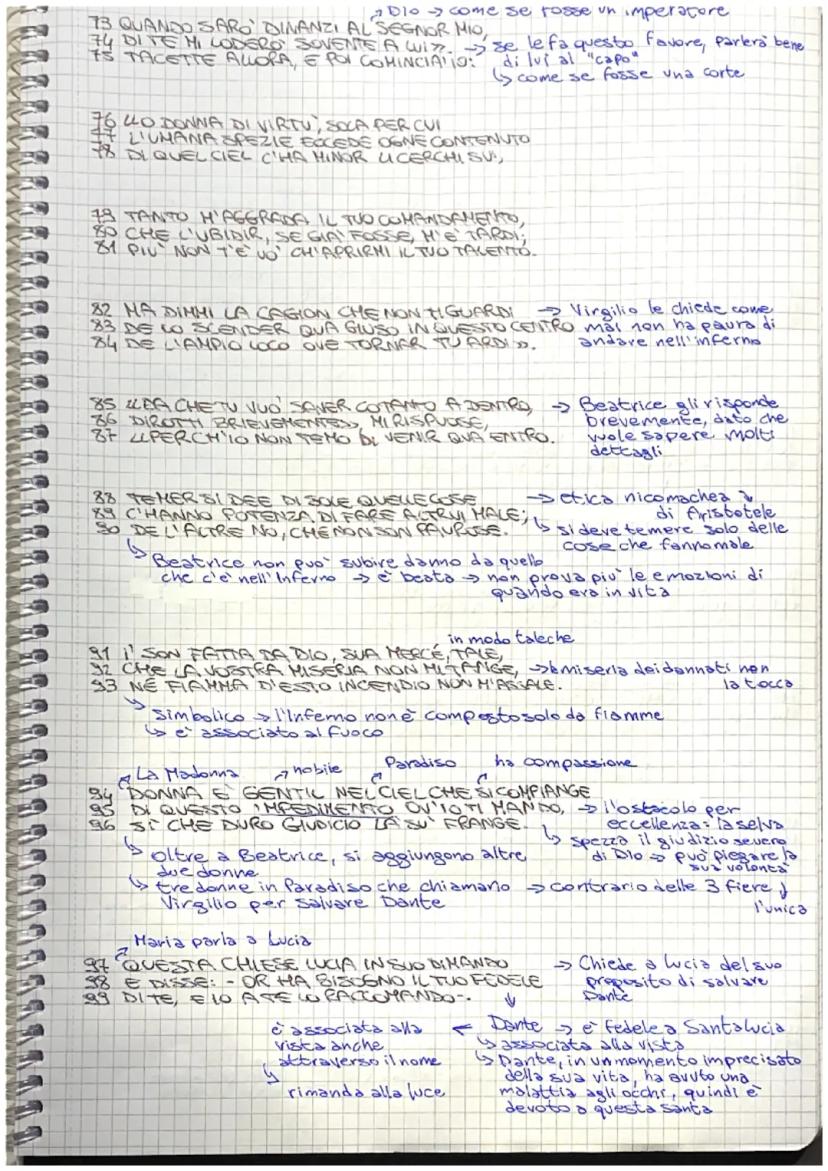 Dio → come se fosse un imperatore
73 QUANDO SARO' DINANZI AL SEGNOR MIO,
74 DI TE MI LODERO' SOVENTE A LUI». → se le fa questo favore, parlerà bene
75 TACETTE ALLORA, E POI COMINCIA' IO: di lui al "capo"
↳ come se fosse una corte
76 «O DONNA DI VIRTU', SOLA PER CUI
77 L'UMANA SPEZIE ECCEDE OGNE CONTENUTO
78 DI QUEL CIEL C'HA MINOR LI CERCHI SUI,
79 TANTO M'AGGRADA IL TUO COMANDAMENTO,
80 CHE L'UBIDIR, SE GIA' FOSSE, M'E' TARDI;
81 PIU' NON T'E' UO' CH'APRIRMI IL TUO TALENTO.
82 MA DIMMI LA CAGION CHE NON TI GUARDI → Virgilio le chiede come
83 DE LO SCENDER QUA GIUSO IN QUESTO CENTRO mai non ha paura di
84 DE L'AMPIO LOCO OVE TORNAR TU ARDI». andare nell'inferno
85 «DA CHE TU VUO' SAVER COTANTO A DENTRO, → Beatrice gli risponde
86 DIROTTI BRIEVEMENTE», MI RISPUOSE, brevemente, dato che
87 «PERCH'IO NON TEMO DI VENIR QUA ENTRO. vuole sapere molti
dettagli
88 TEMER SI DEE DI SOLE QUELLE COSE → etica nicomachea ↴
89 C'HANNO POTENZA DI FARE ALTRUI MALE; di Aristotele
90 DE L'ALTRE NO, CHE NON SON PAUROSE. ↳ si deve temere solo delle
cose che fanno male
↳ Beatrice non può subire danno da quello
che c'è nell'Inferno → è beata → non prova più le emozioni di
quando era in vita
in modo tale che
91 I' SON FATTA DA DIO, SUA MERCÉ, TALE,
92 CHE LA VOSTRA MISERIA NON MI TANGE, → la miseria dei dannati non
93 NÉ FIAMMA D'ESTO INCENDIO NON M'ASSALE. la tocca
↳ simbolico → l'Inferno non è composto solo da fiamme
↳ è associato al fuoco
La Madonna nobile Paradiso ha compassione
94 DONNA È GENTIL NEL CIEL CHE SI COMPIANGE
95 DI QUESTO IMPEDIMENTO OV'IO TI MANDO, → l'ostacolo per
96 SÌ CHE DURO GIUDICIO LÀ SÙ FRANGE. eccellenza: la selva
↳ spezza il giudizio severo
di Dio → può piegare la
sua volontà
↳ Oltre a Beatrice, si aggiungono altre
due donne
↳ tre donne in Paradiso che chiamano → contrario delle 3 fiere ↓
Virgilio per salvare Dante l'unica
Maria parla a Lucia
97 QUESTA CHIESE LUCIA IN SUO DIMANDO → Chiede a Lucia del suo
98 E DISSE: - OR HA BISOGNO IL TUO FEDELE proposito di salvare
99 DI TE, E IO A TE LO RACCOMANDO-. Dante
è associata alla ← Dante → è fedele a Santa Lucia
vista anche ↳ associata alla vista
attraverso il nome ↳ Dante, in un momento imprecisato
↳ della sua vita, ha avuto una
rimanda alla luce malattia agli occhi, quindi è
devoto a questa santa